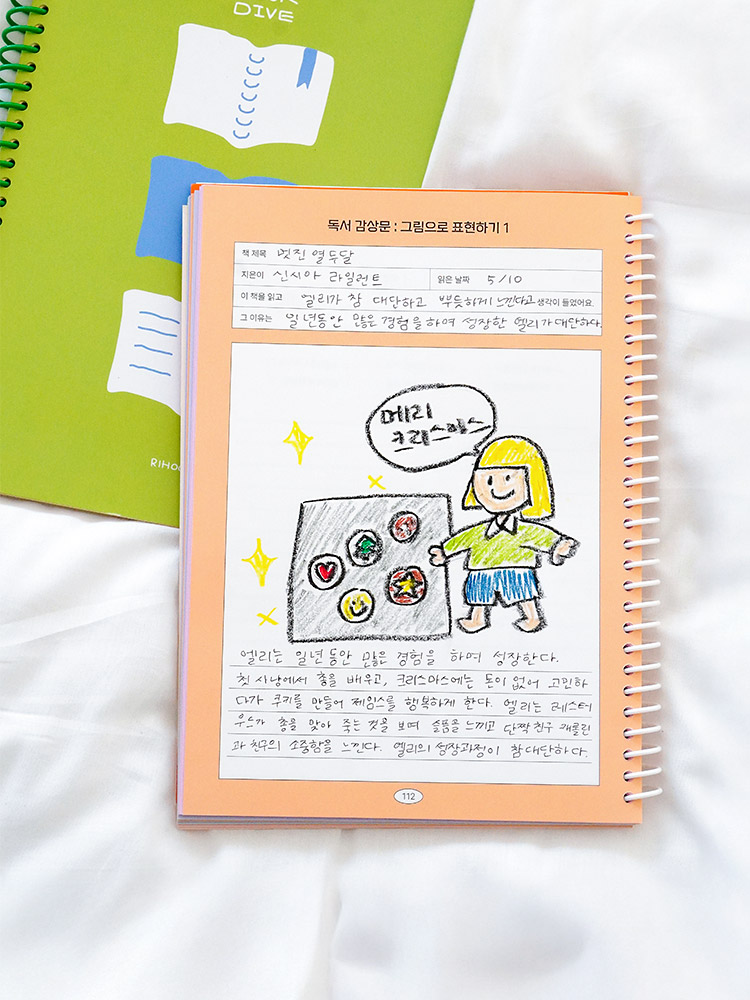 DIVE
RIHO
독서 감상문 : 그림으로 표현하기 1
책 제목 멋진 열두달
지은이 신시아 라일런트 읽은 날짜 5/10
이 책을 읽고 엘리가 참 대단하고 뿌듯하게 느낀다고 생각이 들었어요.
그 이유는 일년동안 많은 경험을 하며 성장한 엘리가 대단하다.
메리
크리스마스
엘리는 일년동안 많은 경험을 하며 성장한다.
첫 사냥에서 총을 배우고, 크리스마스에는 돈이 없어 고민하
다가 쿠키를 만들어 제임스를 행복하게 한다. 엘리는 레스터
우스가 총을 맞아 죽는 것을 보며 슬픔을 느끼고 단짝 친구 캐롤린
과 친구의 소중함을 느낀다. 엘리의 성장과정이 참 대단하다.
112